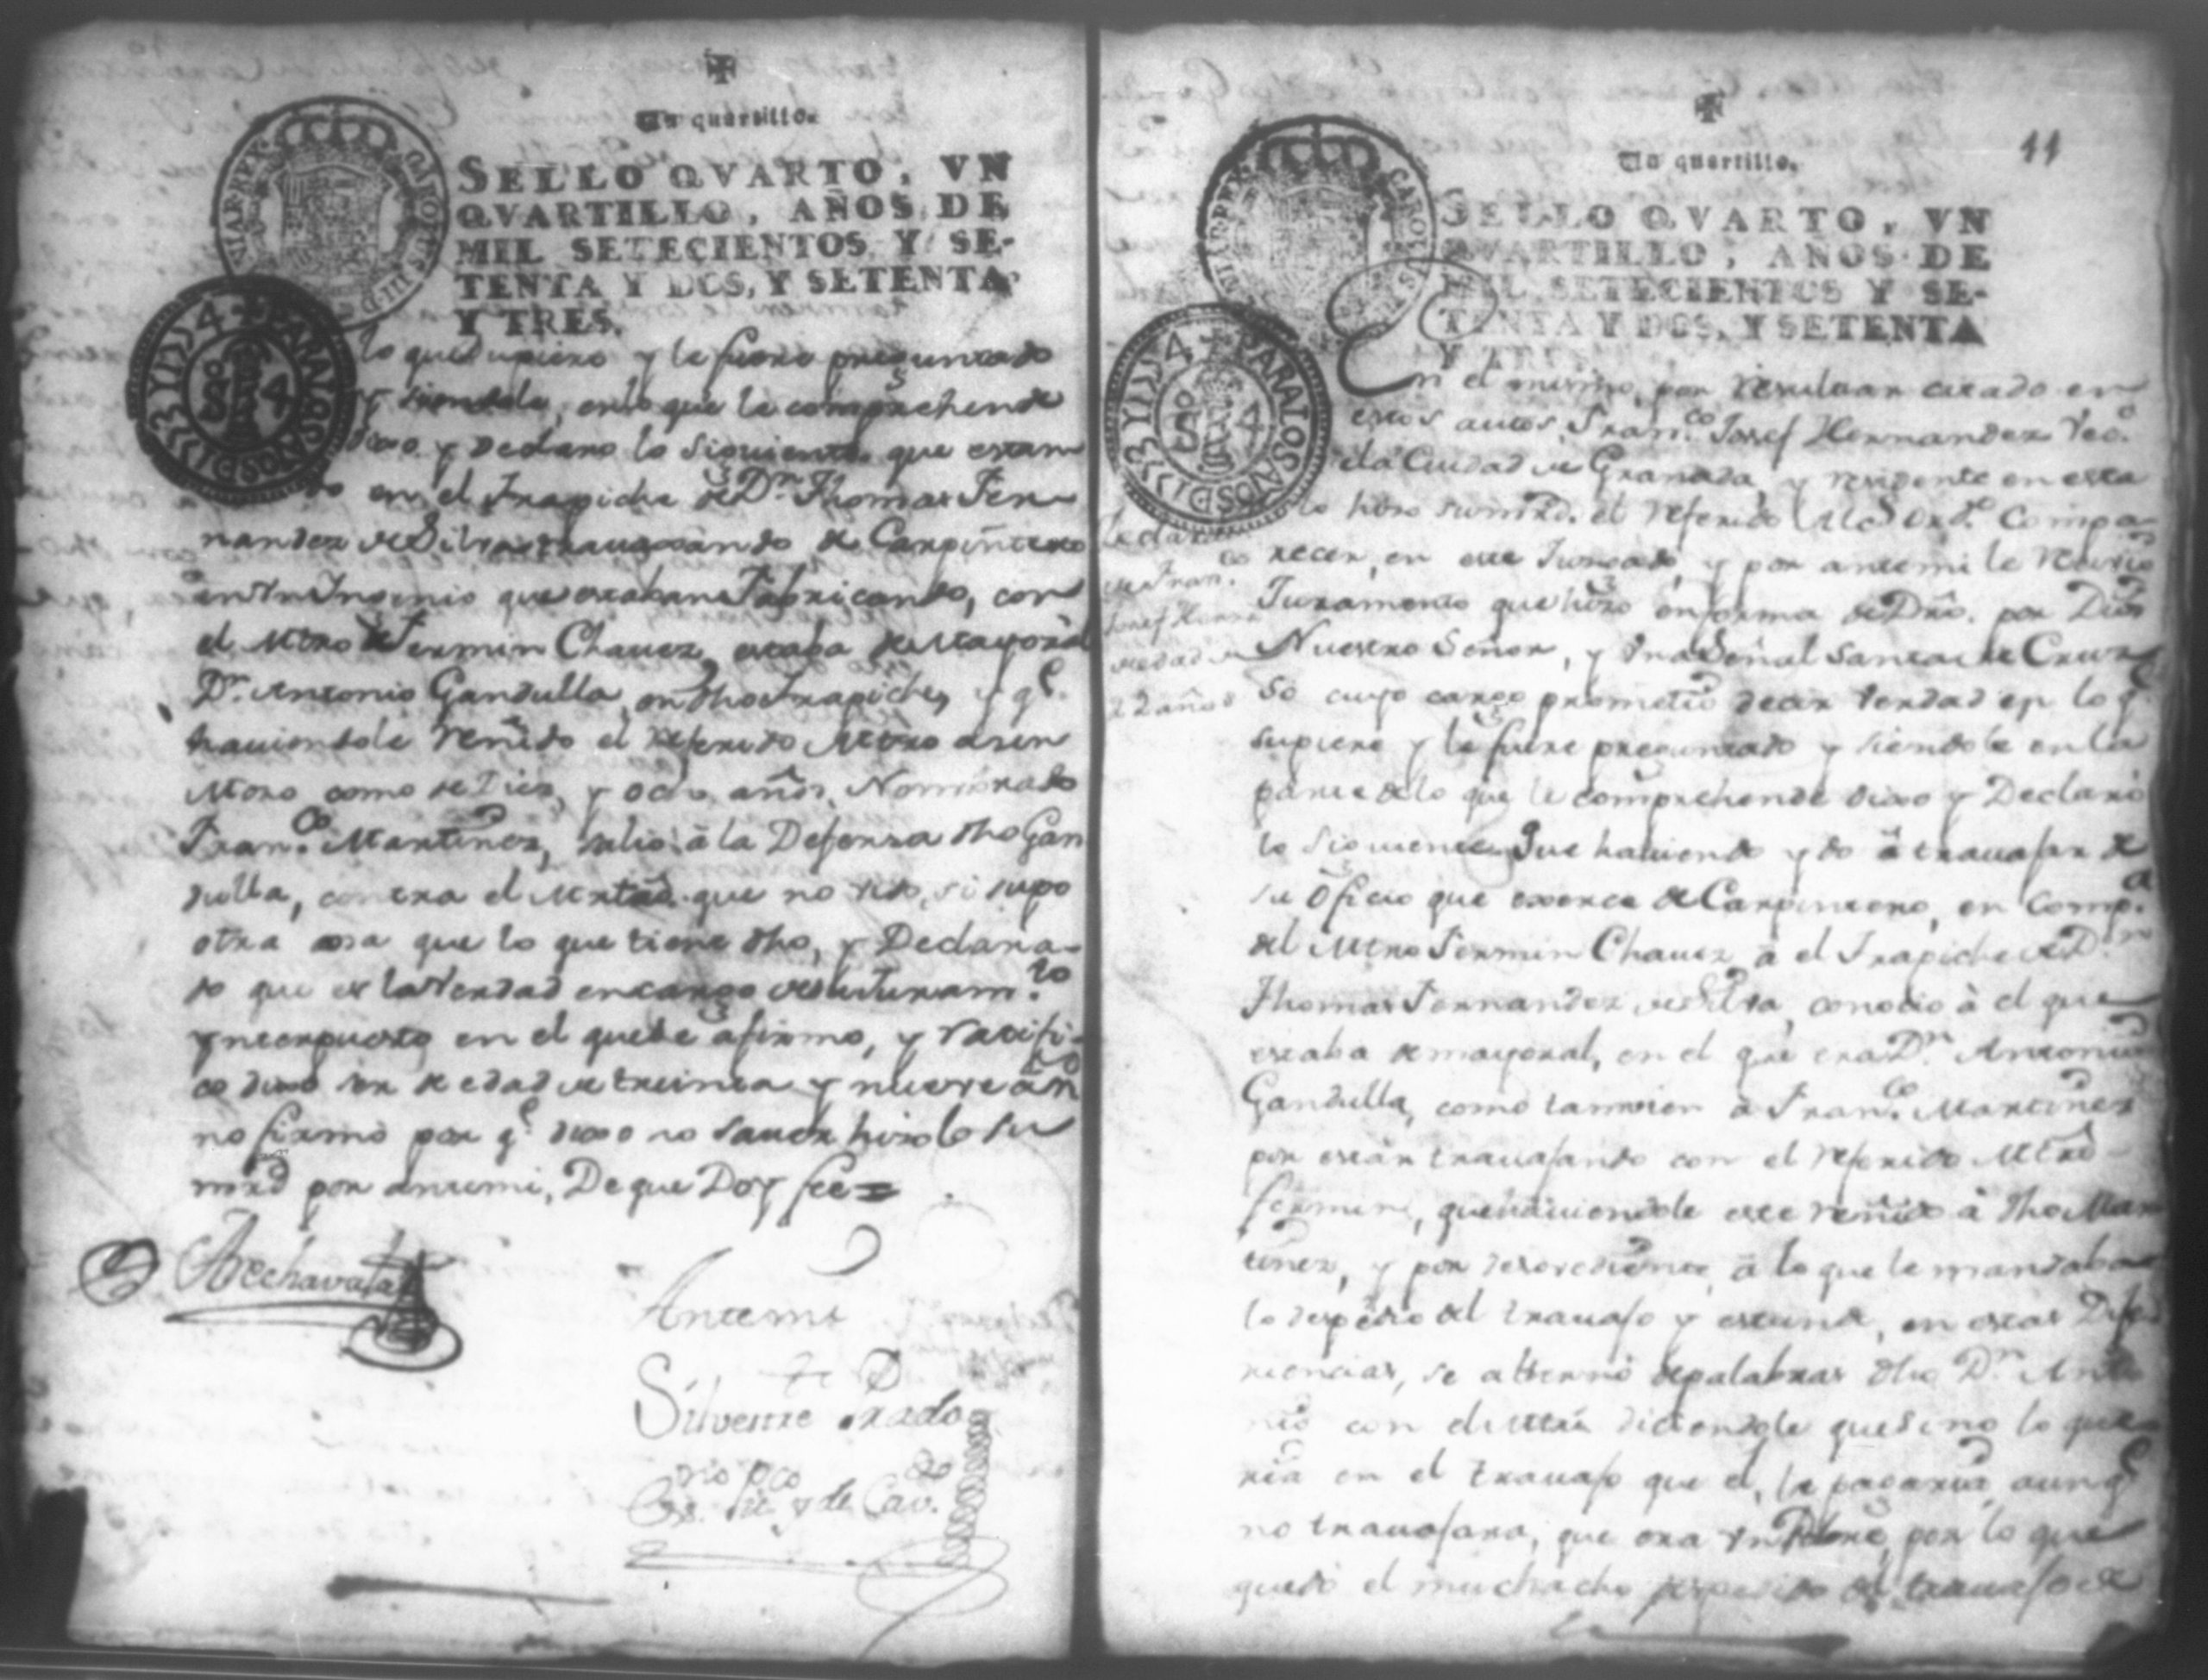 Un quartillo.
SELLO QVARTO, VN
QVARTILLO, AÑOS DE
MIL SETECIENTOS Y SE-
TENTA Y DOS, Y SETENTA
Y TRES.
CAROLUS III D
VIAR REX
PARA LOS AÑOS D 1773 Y 1774
So 4
lo que supiere y le fuere preguntado
y siendole, en lo que le comprehende
dixo y Declaro lo Siguiente que estan
do en el Trapiche de Dn. Thomas Fer-
nandez de Silva travajando de Carpintero
en Un Ingenio que estaban Fabricando, con
el Mtro Fermin Chauez estaba de Mayoral
Dn. Antonio Gandulla, en dho Trapiche, y qe.
haviendole Reñido el Referido Mtro a un
Moso como de Diez, y ocho años, Nombrado
Franco. Martinez, salio â la Defensa dho Gan
dulla, contra el Mtro que no vido, si supo
otra cosa que lo que tiene dho, y Declara-
do que es la Verdad en cargo de su Juramto.
ynterpuesto en el que se afirmo, y ratifi-
co dixo ser de edad de treinta y nueve añ
no firmó por qe. dixo no saver hizolo su
mrd por antemi, De que Doy fee=
Arechavala
Antemi
Silvestre
Prado
de Cav.
Un quartillo.
11
SELLO QVARTO, VN
QVARTILLO, AÑOS DE
MIL SETECIENTOS Y SE-
TENTA Y DOS, Y SETENTA
Y TRES.
CAROLUS
PARA LOS AÑOS D 1773 Y 1774
So 4
En el mismo, por resultar citado en
estos autos, Franco. Josef Hernandez Veco.
de la Ciudad de Granada, y residente en esta
lo hizo su mrd. el referido Alce Ordo. Compa-
recer, en este Jusgado, y por antemi le Recivio
Juramento que hizo en forma de Dro. por Dios
Nuestro Señor, y Una Señal Santa de Cruz
so cuyo cargo prometió decir Verdad en lo qe
supiere y le fuere preguntado y siendole en la
parte de lo que le comprehende dixo y Declaró
lo siguiente Que haviendo ydo â travajar de
su Oficio que exerce de Carpintero, en Compa.
del Mtro Fermin Chauez â el Trapiche de Dn
Thomas Fernandez de Silva, conocio â el que
estaba de mayoral, en el que era Dn Antonio
Gandulla, como tamvien â Franco. Martinez
por estar travajando con el referido Mtro
fermin, que haviendole este reñido â dho Mar
tinez, y por desovediente, â lo que le mandaba
lo despidio del travajo y estando, en estas Dife
riencias, se atternó de palabras dho Dn Anto
nio con el Mtro diciendole que si no lo que
ria en el travajo que el, le pagaria aunqe
no travajara, que era Un Pobre, por lo que
quedó el muchacho despedido del travajo de
Declar
de Franco.
Josef Hern
de edad de
22 años